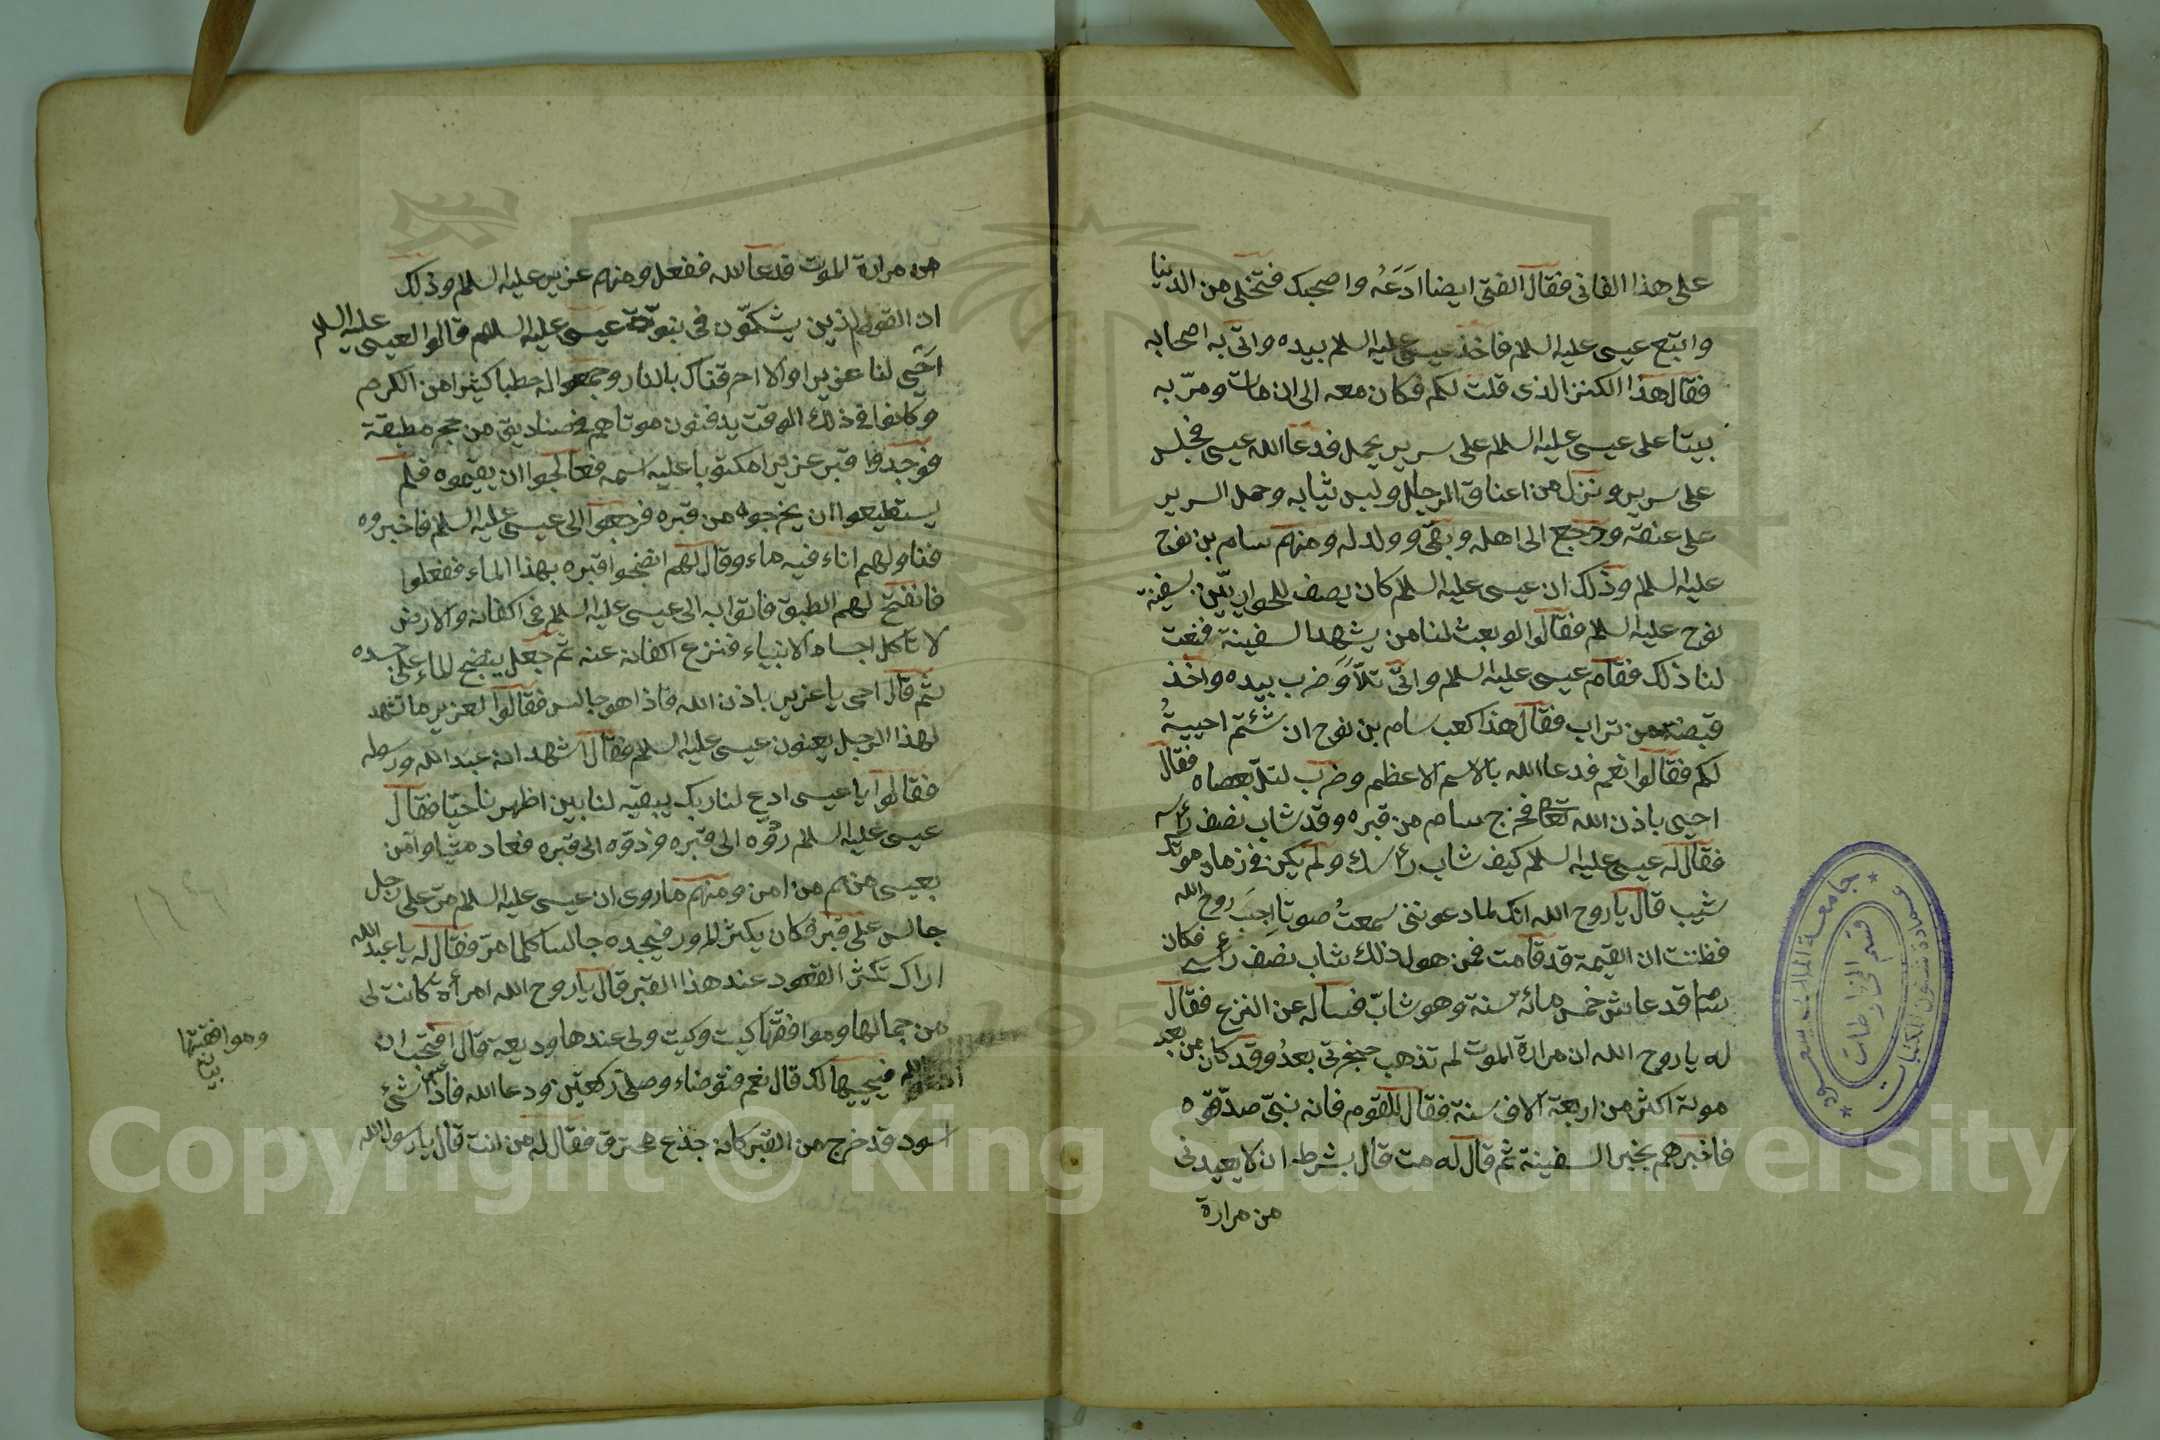 على هذا الفانى فقال الفتى ايضا ادَعَه واصحبك فتخلى من الدنيا
واتبع عيسى عليه السلم فاخذ عيسى عليه السلم بيده واتى به اصحابه
فقال هذا الكنز الذى قلت لكم فكان معه الى ان مات ومرّ به
ميتا على عيسى عليه السلم على سرير يحمل فدعا الله عيسى فجلس
على سريره ونزل من اعناق الرجال ولبس ثيابه وحمل السرير
على عنقه ورجع الى اهله وبقى وولد له ومنهم سام بن نوح
عليه السلم وذلك ان عيسى عليه السلم كان يصف للحواريّين سفينة
نوح عليه السلم فقالوا لو بعث لنا من يشهد السفينة فنعت
لنا ذلك فقام عيسى عليه السلم واتى تلّا وَضرب بيده واخذ
قبضة من تراب فقال هذا كعب سام بن نوح ان شئتم احييتُه
لكم فقالوا نعم فدعا الله بالاسم الاعظم وضرب لتلّ بعصاه فقال
احيى باذن الله تعالى فخرج سام من قبره وقد شاب نصف رأسه
فقال له عيسى عليه السلم كيف شاب رأسك ولم يكن فى زمان موتك
شيب قال يا روح الله انك لما دعوتنى سمعتُ صوتا اجِبَ روح الله
فظننت ان القيمة قد قامت فمن هول ذلك شاب نصف رأسى فكان
سام قد عاش خمس مائة سنة وهو شابّ فسأله عن النزع فقال
له يا روح الله ان مرارة الموت لم تذهب حنجرتى بعدُ وقد كان من بعد
موته اكثر من اربعة الاف سنة فقال للقوم فانه نبىّ صدّقوه
فاخبرهم بخبر السفينة ثم قال له مت قال بشرط ان لا يعيدنى
من مرارة
من مرارة الموت فدعا الله ففعل ومنهم عزير عليه السلم وذلك
ان القوم الذين يشكّون فى نبوّة عيسى عليه السلم قالوا لعيسى عليه السلم
احَيى لنا عزيرا والا احرقناك بالنار وجمعوا له حطبا كثيرا من الكرم
وكانوا فى ذلك الوقت يدفنون موتاهم فى صناديق من حجر مطبقة
فوجدوا قبر عزيرا مكتوبا عليه اسمه فعالجوا ان يقيموه فلم
يستطيعوا ان يخرجوه من قبره فرجعوا الى عيسى عليه السلم فاخبروه
فناولهم اناء فيه ماء وقال لهم انضحوا قبره بهذا الماء ففعلوا
فانفتح لهم الطبق فاتوا به الى عيسى عليه السلم فى اكفانه والارض
لا تاكل اجساد الانبياء فنزع اكفانه عنه ثم جعل ينضح الماء على جسده
ثم قال احى يا عزير باذن الله فاذا هو جالس فقالوا لعزير ما تشهد
لهذا الرجل يعنون عيسى عليه السلم فقال اشهد انه عبد الله ورسوله
فقالوا يا عيسى ادع لنا ربك يبقيه لنا بين اظهرنا حيّا فقال
عيسى عليه السلم ردّوه الى قبره فردّوه الى قبره فعاد ميتا وآمن
بعيسى منهم من امن ومنهم ما روى ان عيسى عليه السلم مرّ على رجل
جالس على قبر فكان يكثر المرور فيجده جالسا كلما مرّ فقال له يا عبد الله
اراك تكثر القعود عند هذا القبر قال يا روح الله امرأة كانت لى
من جمالها وموافقتها كيت وكيت ولى عندها وديعة قال افتحب ان
ادعو الله فيحييها لك قال نعم فتوضاء وصلى ركعتين ودعا الله فاذا شئ
اسود قد خرج من القبر كانه جذع محترق فقال له من انت قال يا رسول الله
وموافقتها
جامعة الملك سعود
قسم المخطوطات
عمادة شئون المكتبات
Copyright © King Saud University